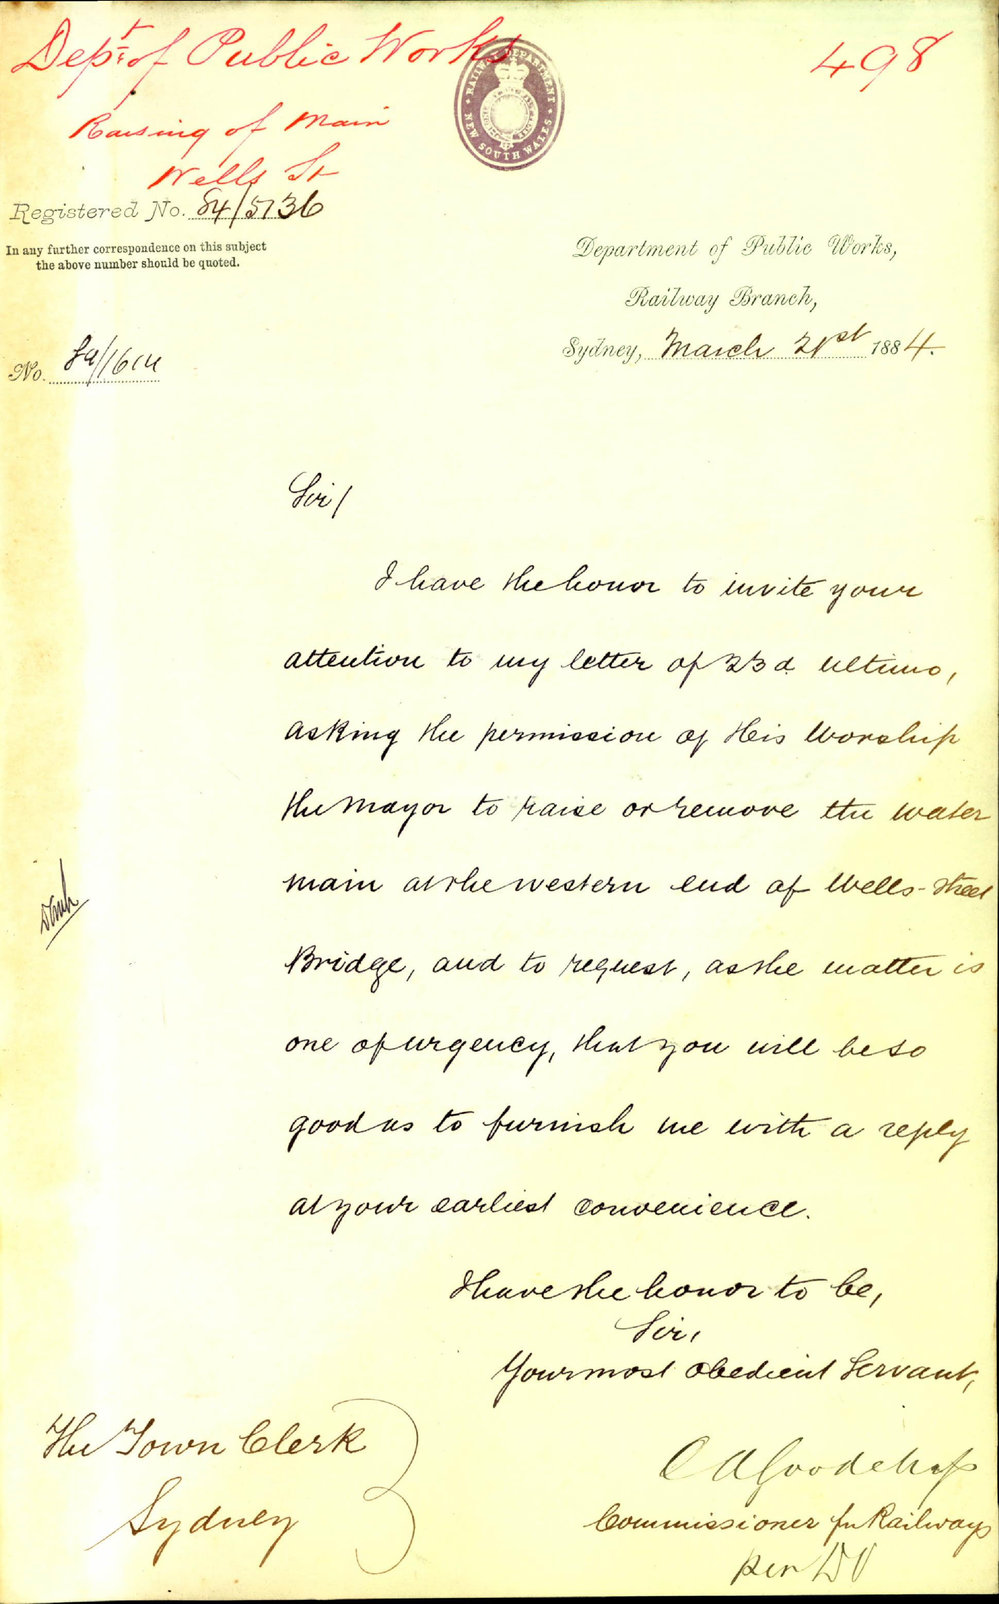 Dept. of Public Works
498
RAILWAY DEPARTMENT
NEW SOUTH WALES
Raising of Main
Wells St
Registered No. 84/5136
In any further correspondence on this subject
the above number should be quoted.
Department of Public Works,
Railway Branch,
Sydney, March 21st 1884.
No.
Sir/
I have the honor to invite your
attention to my letter of 23d ultimo,
asking the permission of His Worship
the Mayor to raise or remove the water
main at the western end of Wells-Street
Bridge, and to request, as the matter is
one of urgency, that you will be so
good as to furnish me with a reply
at your earliest convenience.
I have the honor to be,
Sir,
Your most obedient Servant,
The Town Clerk
Sydney
Commissioner for Railways
per